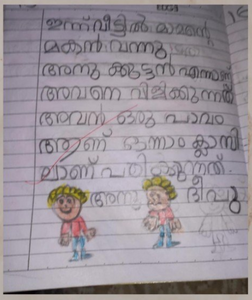 ഇന്ന് വീട്ടിൽ മാമന്റെ
മകൻ വന്നു
അനു ക്കുട്ടൻ എന്നാണ്
അവനെ വിളിക്കുന്നത്
അവൻ ഒരു പാവം
ആണ് ഒന്നാം ക്ലാസി
ലാണ് പഠിക്കുന്നത്.
അനു ദീപു